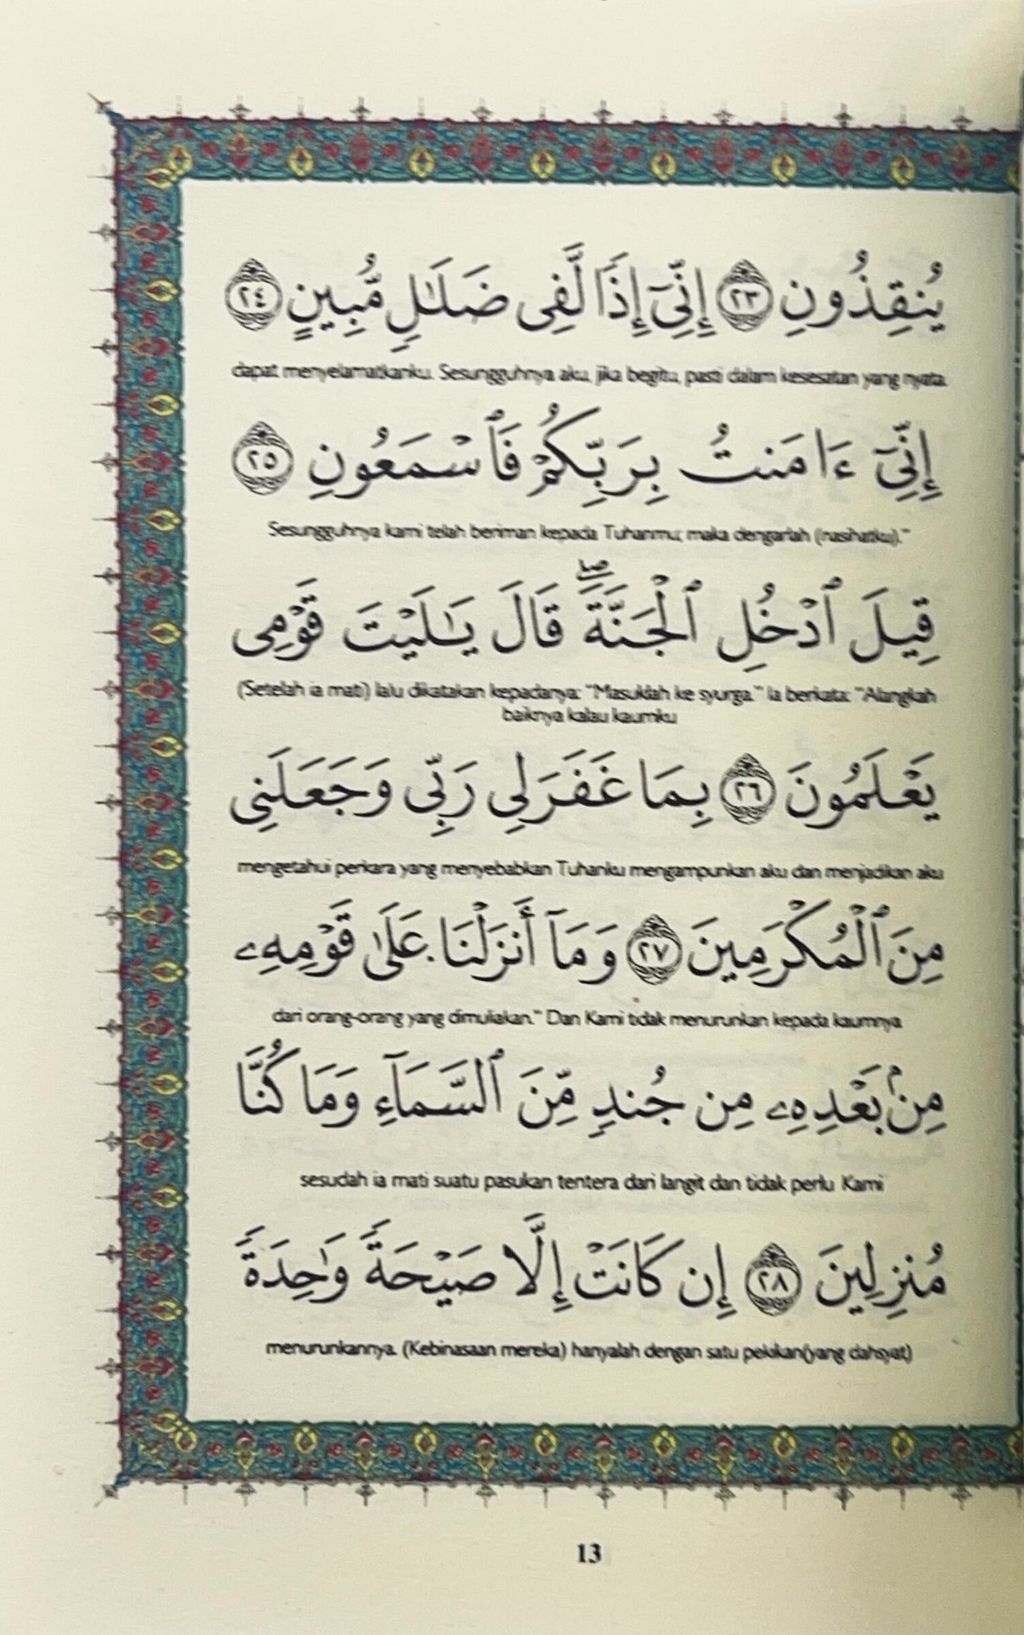 يُنقِذُونِ ٢٣ إِنِّىٓ إِذًا لَّفِى ضَلَـٰلٍ مُّبِينٍ ٢٤
dapat menyelamatkanku. Sesungguhnya aku, jika begitu, pasti dalam kesesatan yang nyata.
إِنِّىٓ ءَامَنتُ بِرَبِّكُمْ فَٱسْمَعُونِ ٢٥
Sesungguhnya kami telah beriman kepada Tuhanmu; maka dengarlah (nasihatku)."
قِيلَ ٱدْخُلِ ٱلْجَنَّةَ ۖ قَالَ يَـٰلَيْتَ قَوْمِى
(Setelah ia mati) lalu dikatakan kepadanya: "Masuklah ke syurga." Ia berkata: "Alangkah
baiknya kalau kaumku
يَعْلَمُونَ ٢٦ بِمَا غَفَرَ لِى رَبِّى وَجَعَلَنِى
mengetahui perkara yang menyebabkan Tuhanku mengampunkan aku dan menjadikan aku
مِنَ ٱلْمُكْرَمِينَ ٢٧ وَمَآ أَنزَلْنَا عَلَىٰ قَوْمِهِۦ
dari orang-orang yang dimuliakan." Dan Kami tidak menurunkan kepada kaumnya
مِنۢ بَعْدِهِۦ مِن جُندٍ مِّنَ ٱلسَّمَآءِ وَمَا كُنَّا
sesudah ia mati suatu pasukan tentera dari langit dan tidak perlu Kami
مُنزِلِينَ ٢٨ إِن كَانَتْ إِلَّا صَيْحَةً وَٰحِدَةً
menurunkannya. (Kebinasaan mereka) hanyalah dengan satu pekikan(yang dahsyat)
13